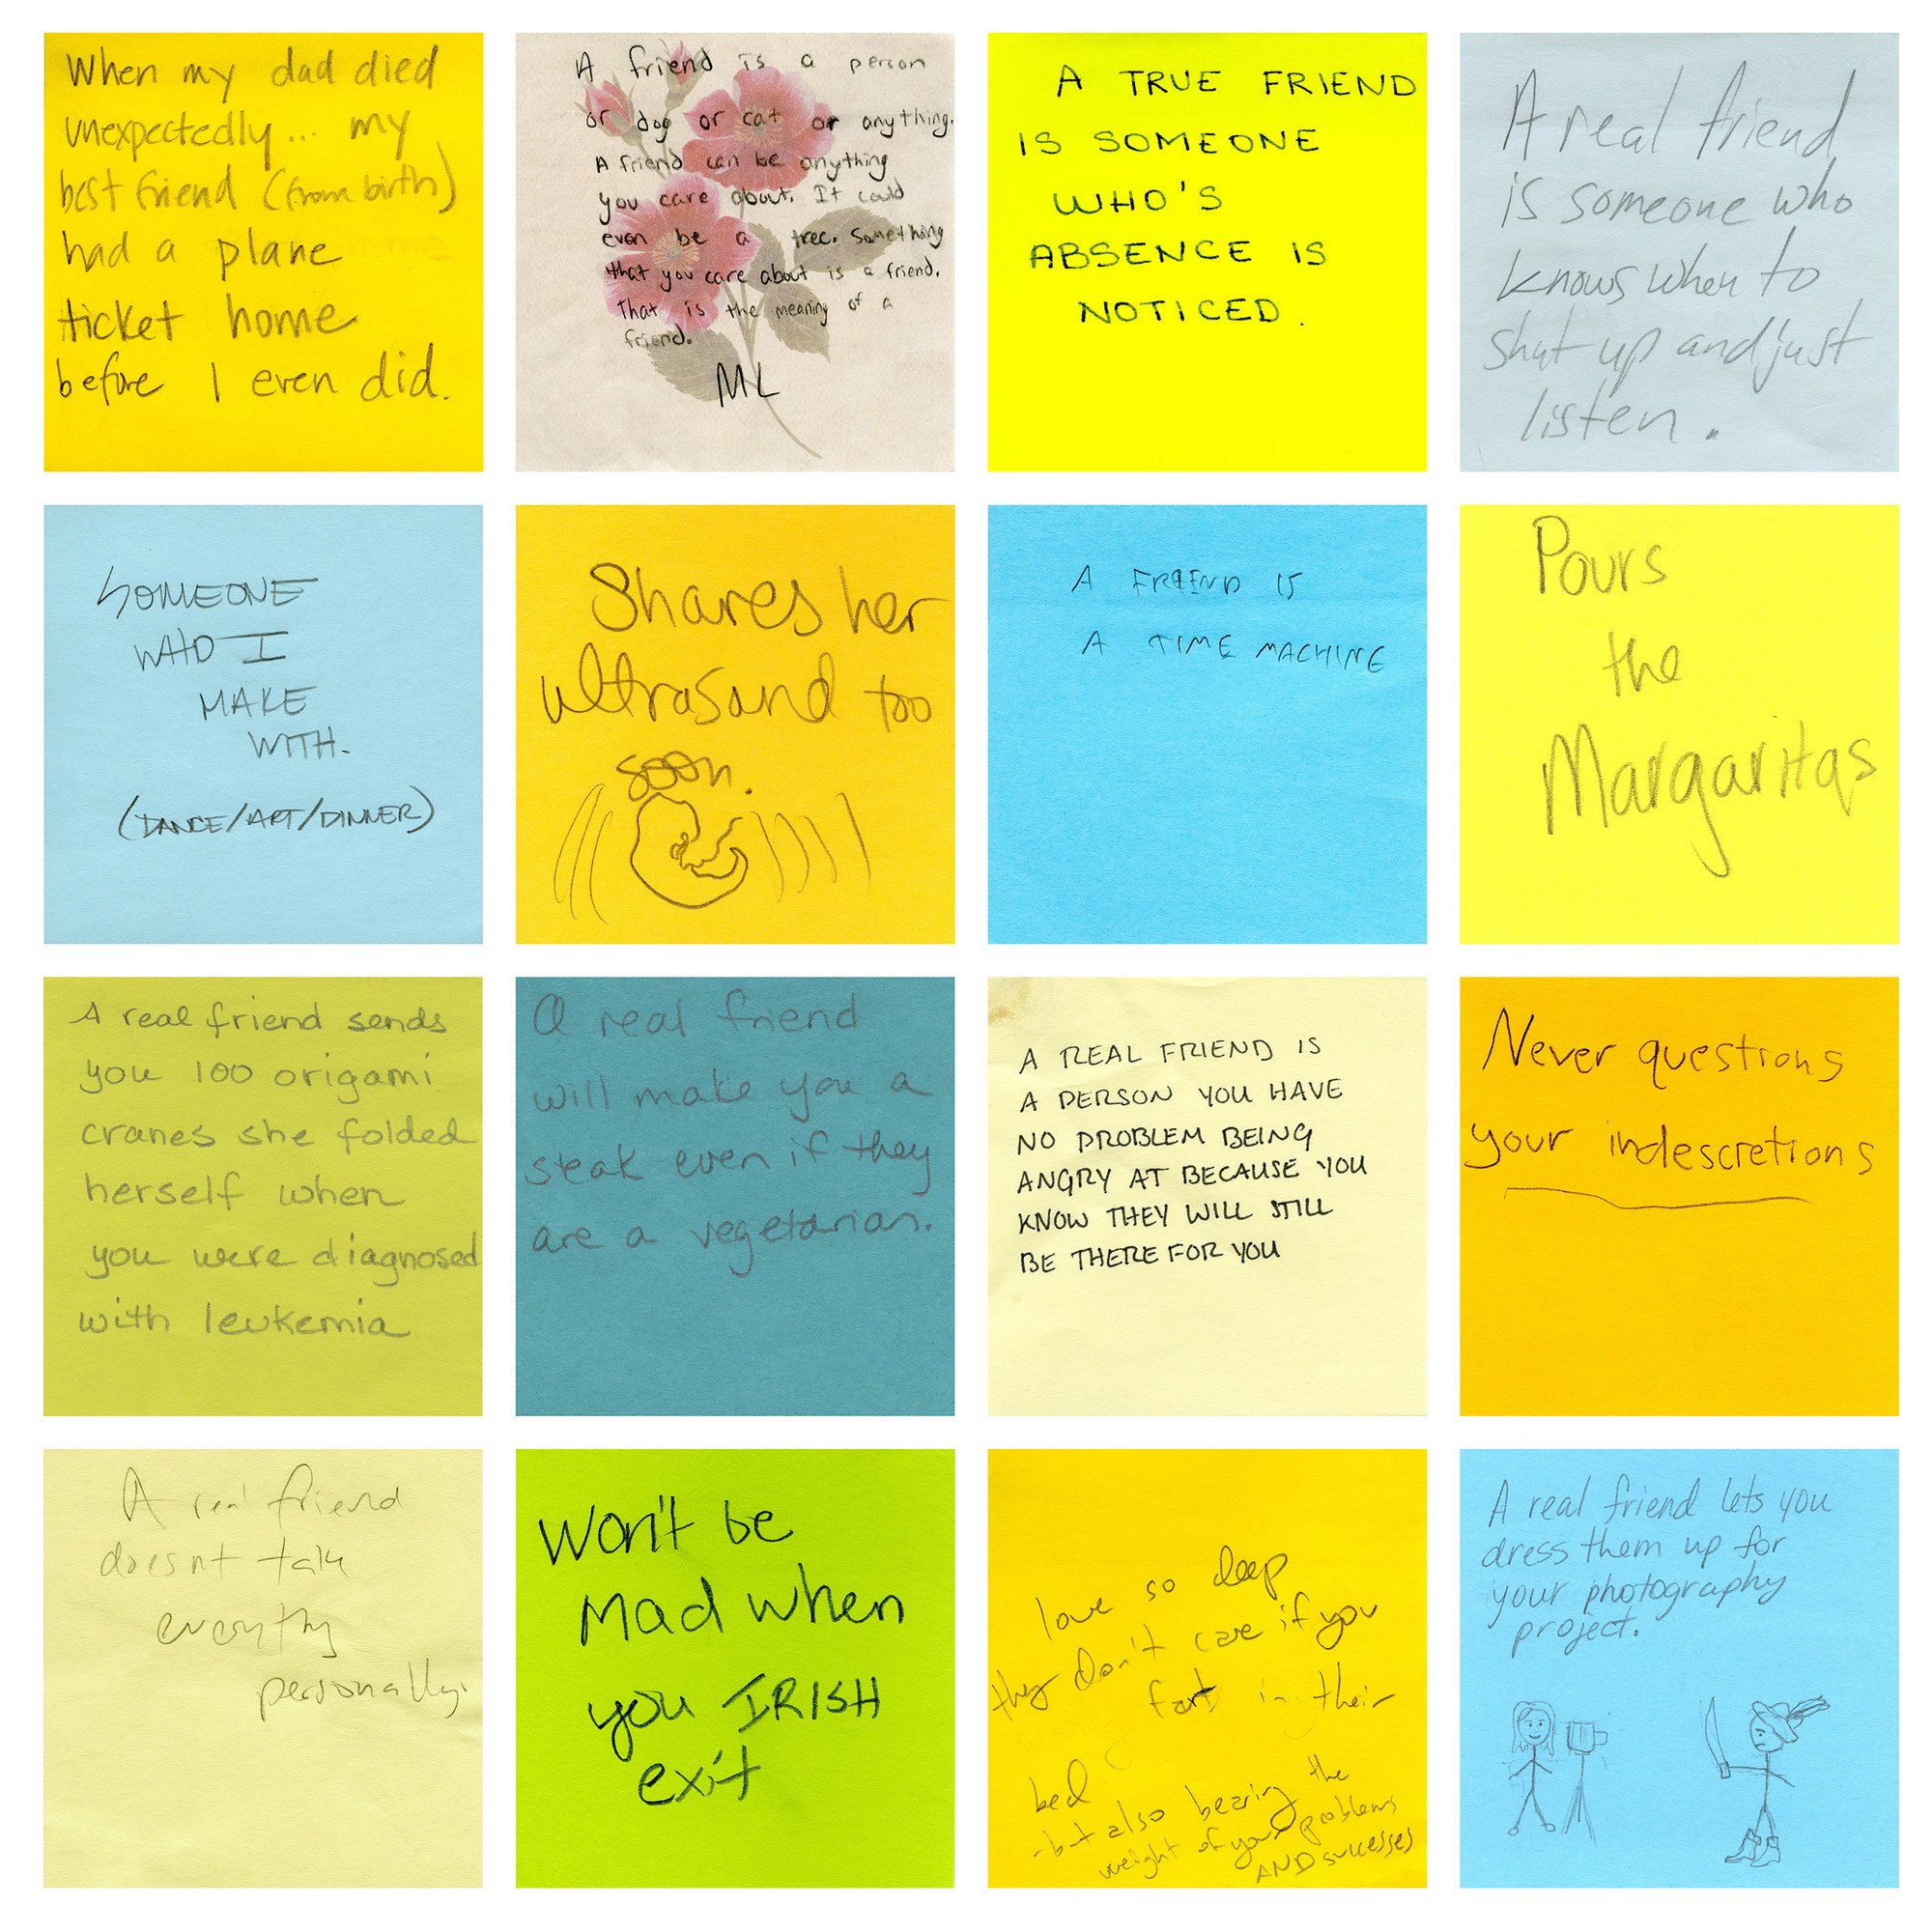 When my dad died
unexpectedly... my
best friend (from birth)
had a plane
ticket home
before I even did.
A friend is a person
or dog or cat or anything.
A friend can be anything
you care about. It could
even be a tree. Something
that you care about is a friend.
That is the meaning of a
friend.
ML
A TRUE FRIEND
IS SOMEONE
WHO'S
ABSENCE IS
NOTICED.
A real friend
is someone who
knows when to
shut up and just
listen.
SOMEONE
WHO I
MAKE
WITH.
(DANCE/ART/DINNER)
Shares her
ultrasound too
soon.
A FRIEND IS
A TIME MACHINE
Pours
the
Margaritas
A real friend sends
you 100 origami
cranes she folded
herself when
you were diagnosed
with leukemia
A real friend
will make you a
steak even if they
are a vegetarian.
A REAL FRIEND IS
A PERSON YOU HAVE
NO PROBLEM BEING
ANGRY AT BECAUSE YOU
KNOW THEY WILL STILL
BE THERE FOR YOU
Never questions
your indescretions
A real friend
doesnt take
everythg
personally.
Won't be
Mad when
you IRISH
exit
love so deep
they don't care if you
fart in their
bed
-but also bearing the
weight of your problems
AND successes
A real friend lets you
dress them up for
your photography
project.